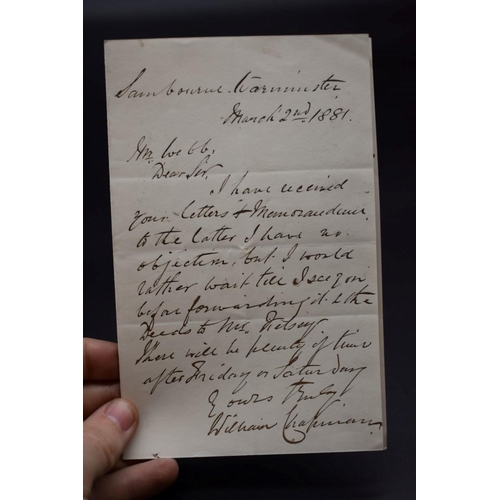 Sambourne. Warminster
March 2nd. 1881.
Mr. Webb.
Dear Sir,
I have received
your letters & Memorandum
to the latter I have no
objection, but I would
rather wait till I see you
before forwarding it & the
Deeds to Mrs. Kelsey
There will be plenty of time
after Friday or Saturday
Yours truly
William Chapman